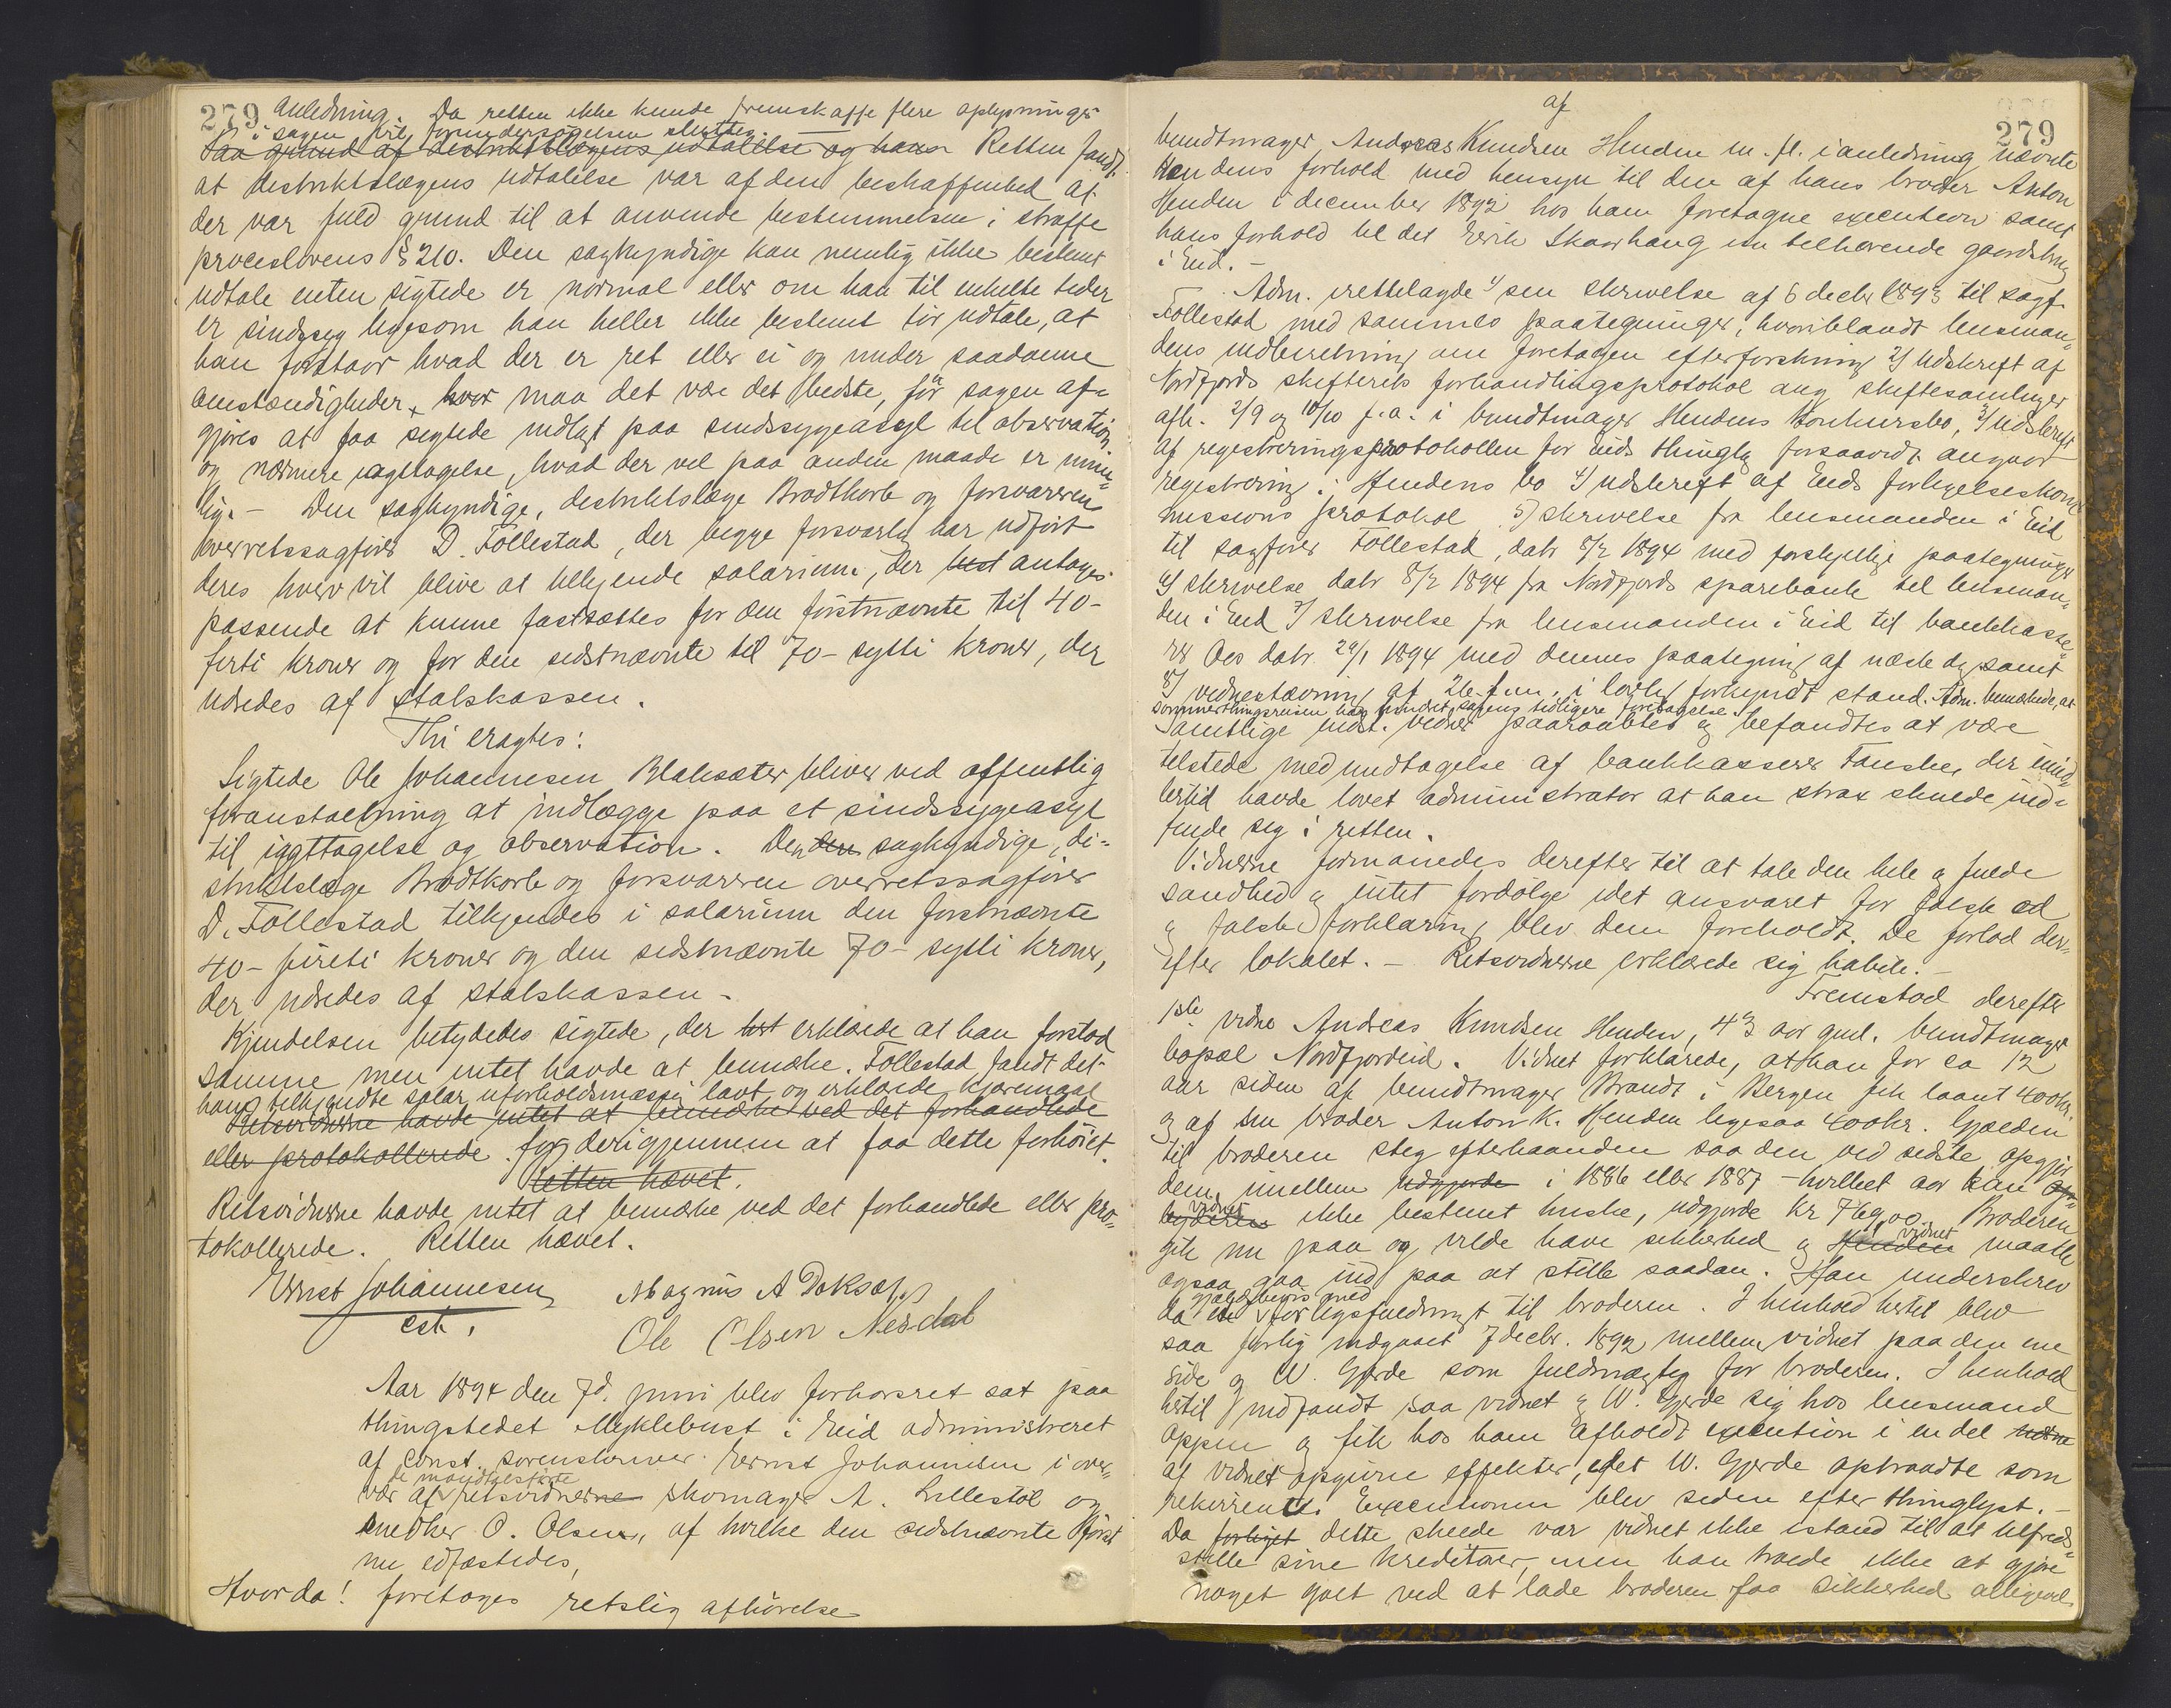 279 Anledning. Da retten ikke kunde fremskaffe flere oplysninger
i sagen vil forundersøgelsen sluttes.
Paa grund af destriktslægens udtalelse og hans Retten fandt
at destriktslægens udtalelse var af den beskaffenhed at
der var fuld grund til at anvende bestemmelsen i straffe
proceslovens § 210. Den sagkyndige kan nemlig ikke bestemt
udtale enten sigtede er normal eller om han til enkelte tider
er sindssyg ligesom han heller ikke bestemt tør udtale, at
han forstaar hvad der er ret eller ei og under saadanne
omstændigheder, hvor maa det være det bedste, før sagen af-
gjøres at faa sigtede indlagt paa sindssygeasyl til observation
og nærmere iagttagelse, hvad der vel paa anden maade er umu-
lig. – Den sagkyndige, destriktslæge Brodtkorb og forsvareren
overretssagfører D. Follestad, der begge forsvarlig har udført
deres hverv vil blive at tilkjende salarium, der best antages
passende at kunne fastsættes for den førstnævnte til 40 –
førti kroner og for den sidstnævnte til 70 – sytti kroner, der
udredes af statskassen.
Thi eragtes:
Sigtede Ole Johannesen Blaksæter bliver ved offentlig
foranstaltning at indlægge paa et sindssygeasyl
til iagttagelse og observation. Den den sagkyndige, di-
striktslæge Brodtkorb og forsvareren overretssagfører
D. Follestad tilkjendes i salarium den førstnævnte
40 – førti kroner og den sidstnævnte 70 – sytti kroner,
der udredes af statskassen –
Kjendelsen betydedes sigtede, der best erklærede at han forstod
samme men intet havde at bemærke. Follestad fandt det
ham tilkjendte salar uforholdsmæssig lavt og erklærede kjæremaal
Retsvidnerne havde intet at bemærke ved det forhandlede
eller protokollerede for derigjennem at faa dette forhøiet.
Retten hævet.
Retsvidnerne havde intet at bemærke ved det forhandlede eller pro-
tokollerede. Retten hævet.
Ernst Johannesen Magnus A
cst. Ole Olsen Nesdal
Aar 1894 den 7d. juni blev forhørsret sat paa
thingstedet Myklebust i Eid administreret
af const. sorenskriver Ernst Johannesen i over-
de mandtalsførte
vær af retsvidnerne skomager A. Lillestøl og
snedker O. Olsen, af hvilke den sidstnævnte først
nu edfæstedes,
Hvorda! foretoges retslig afhørelse
af
279
bundtmager Andreas Knudsen Henden m. fl. i anledning nævnte
Hendens forhold med hensyn til den af hans broder Anton
Henden i december 1892 hos ham foretagne execution samt
hans forhold til det Eirik Skaarhaug tilhørende gaardsbrug
i Eid. –
Adm. irettelagde 1/ sin skrivelse af 6 decbr 1893 til sagf.
Follestad med sammes paategninger, hvoriblandt lensman-
dens indberetning om foretagen efterforskning 2/ udskrift af
Nordfjords skifterets forhandlingsprotokol ang skiftesamlinger
afh. 2/9 og 10/10 f. a. i bundtmager Hendens konkursbo, 3/ udskrift
af registreringsprotokollen for Eids thinglag forsaavidt angaar
registrering i Hendens bo 4/ udskrift af Eids forligelseskom-
missions protokol 5/ skrivelse fra lensmanden i Eid
til sagfører Follestad, datr 8/2 1894 med forskjellige paategninger
6/ skrivelse datr 8/2 1894 fra Nordfjords sparebank til lensman-
den i Eid 7/ skrivelse fra lensmanden i Eid til bankkasse-
rer Aos datr. 29/1 1894 med dennes paategning af næste dag samt
8/ vidnestævning af 26 f. m. i lovlig forkyndt stand. Adm. bemærkede, at
sommerthingsreisen har hindret sagens tidligere foretagelse.
Samtlige indst. vidner paaraabtes og befandtes at være
tilstede med undtagelse af bankkasserer Fanske, der imid-
lertid havde lovet administrator at han strax skulde ind-
finde sig i retten.
Vidnerne formanedes derefter til at tale den hele og fulde
sandhed og intet fordølge idet ansvaret for falsk ed
og falsk forklaring blev dem foreholdt. De forlod der-
efter lokalet. – Retsvidnerne erklærede sig habile. –
Fremstod derefter
1ste vidne Andreas Knudsen Henden, 43 aar gml. bundtmager
bopæl Nordfjordeid. Vidnet forklarede, at han for ca 12
aar siden af bundtmager Brandt i Bergen fik laant 400 kr.
og af sin broder Anton K. Henden ligesaa 400 kr. Gjælden
til broderen steg efterhaanden saa den ved sidste opgjør
dem imellem udgjorde i 1886 eller 1887 – hvilket aar kan
vidnet ikke bestemt huske, udgjorde kr Broderen
vidnet
gik nu paa og vilde have sikkerhed og Henden maatte
ogsaa gaa ind paa at stille saadan. Han underskrev
gjældsbevis med
da forligsfuldmagt til broderen. I henhold hertil blev
saa forlig indgaaet 7 decbr. 1892 mellem vidnet paa den ene
side og W. Gjerde som fuldmægtig for broderen. I henhold
hertil indfandt saa vidnet og W. Gjerde sig hos lensmand
Oppen og fik hos ham afholdt execution i en del
af vidnet opgivne effekter, idet W. Gjerde optraadte som
rekvirent. Executionen blev siden efter thinglyst. –
Da forliget dette skeede var vidnet ikke istand til at tilfreds-
stille sine kreditorer, men han troede ikke at gjøre
noget galt ved at lade broderen faa sikkerhed alligevel